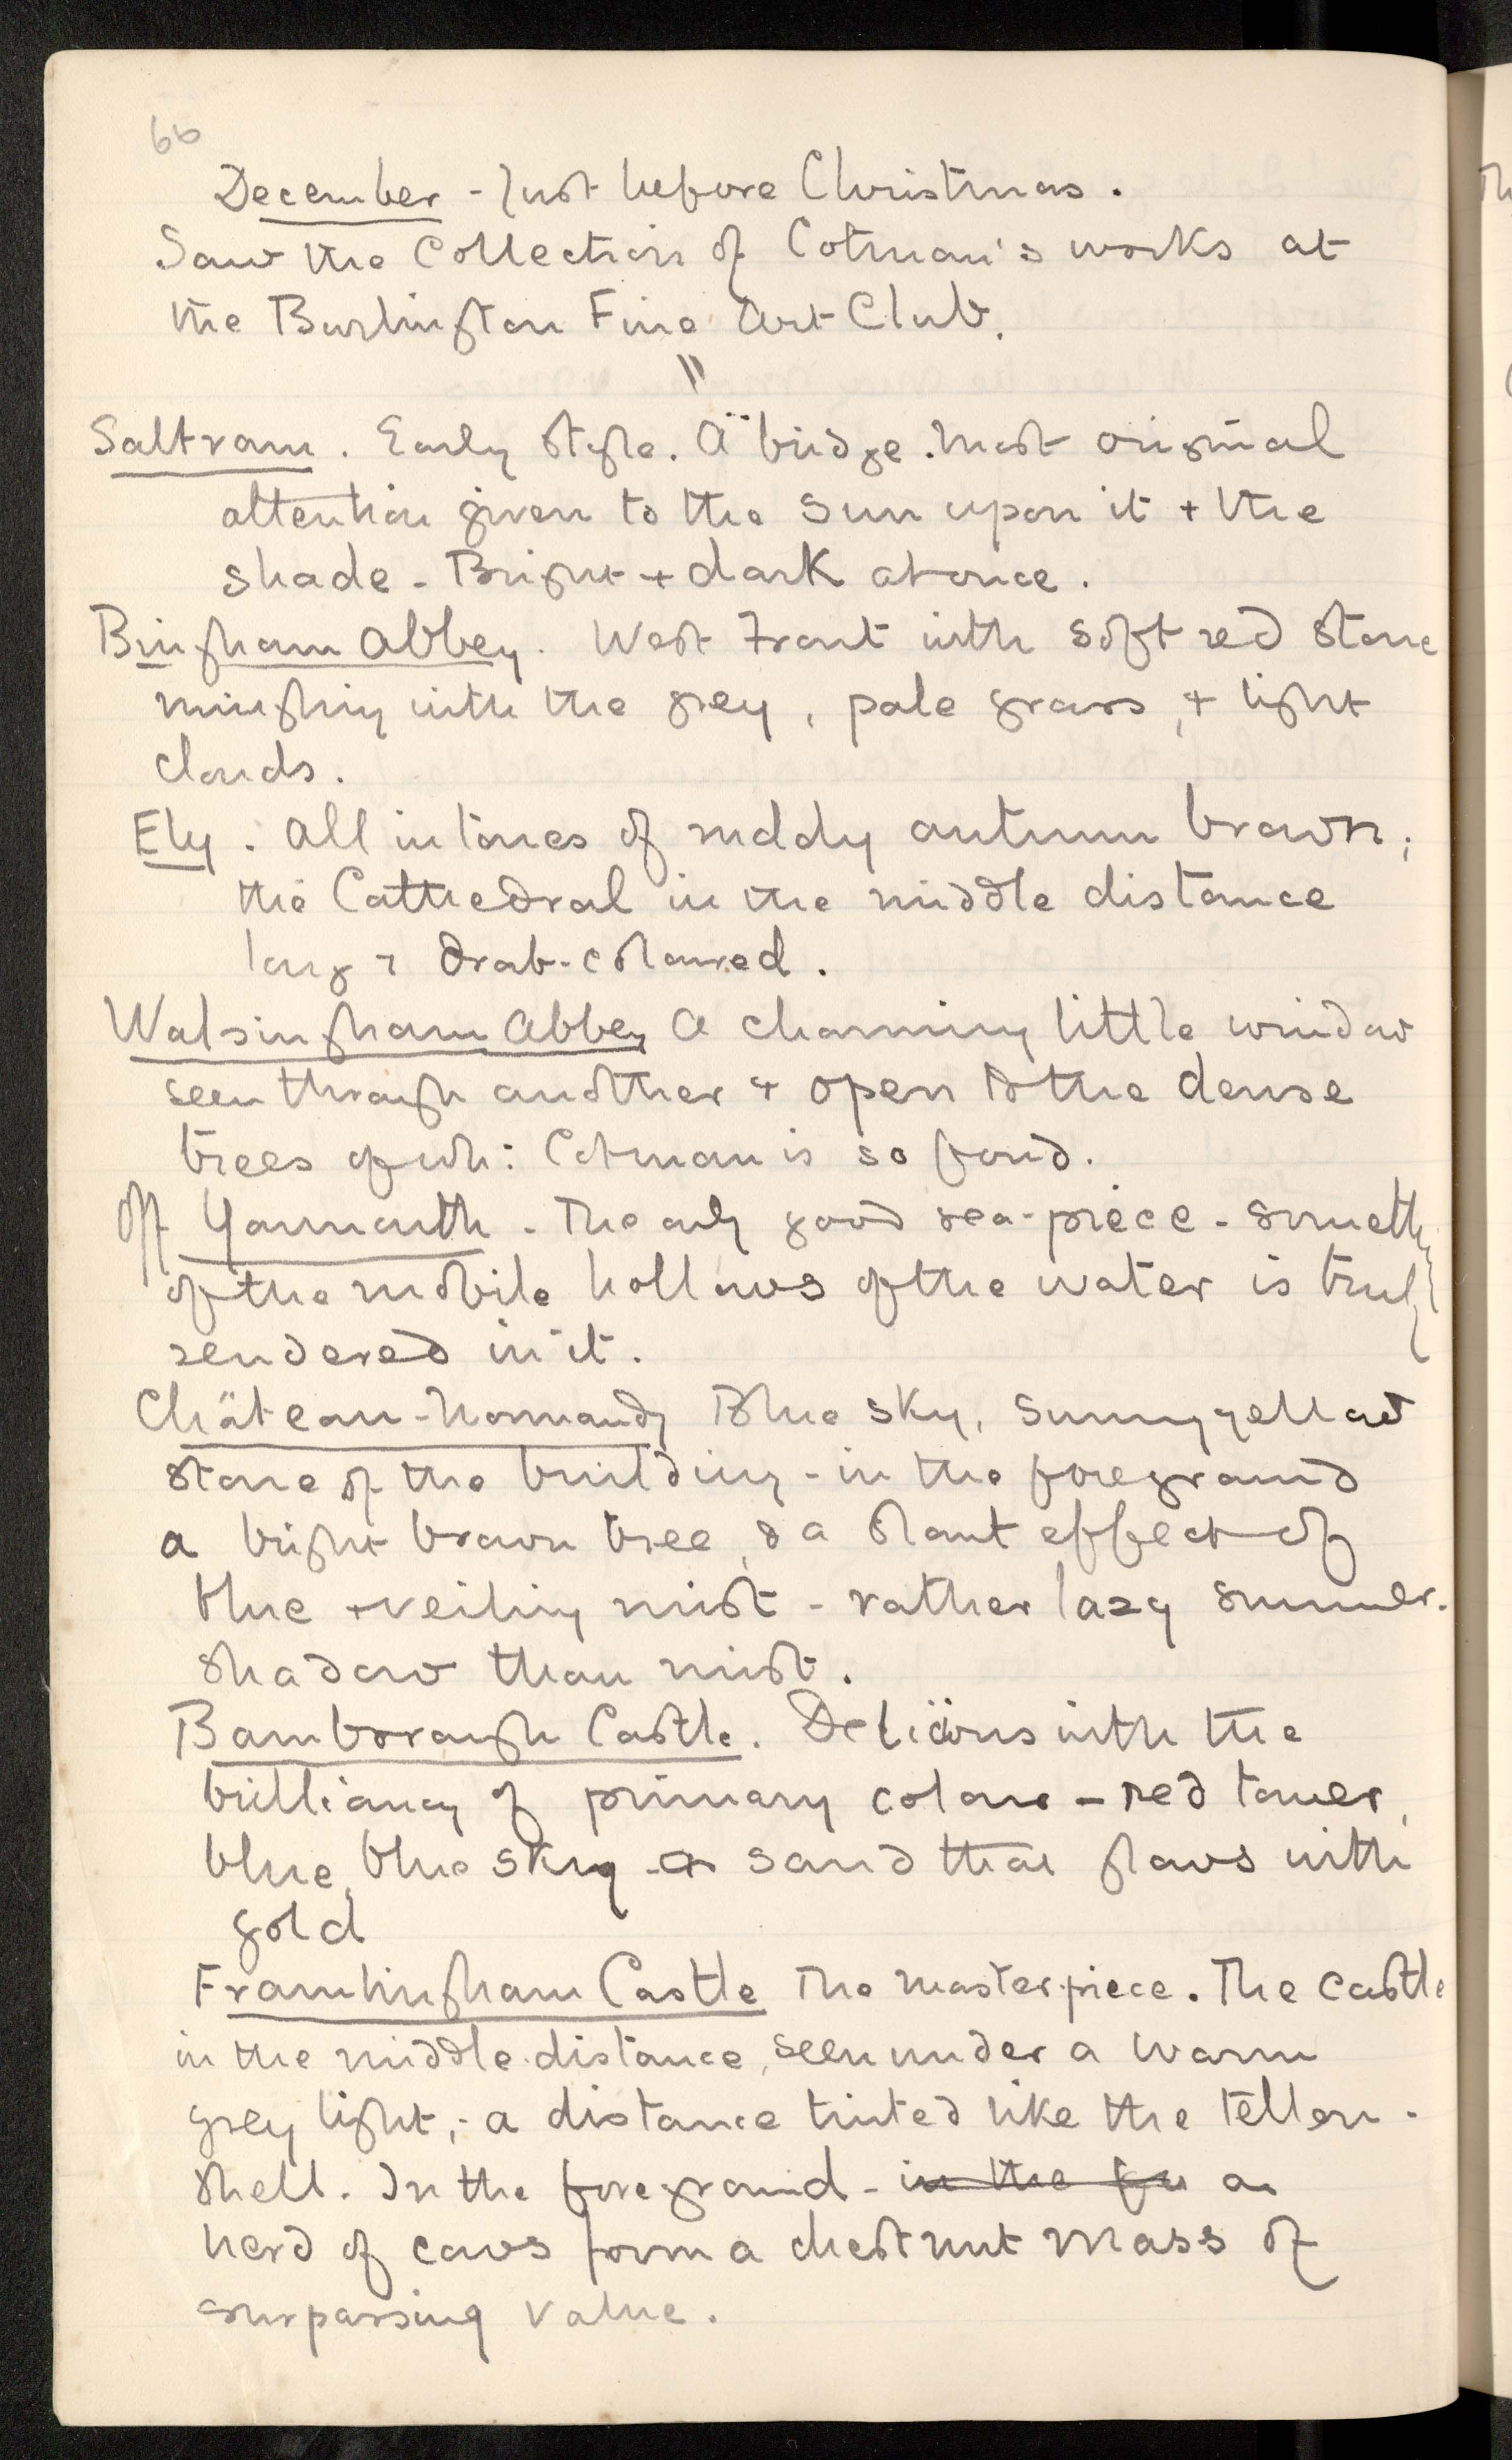 66
December - Just before Christmas.
Saw the Collection of Cotman's works at
the Burlington Fine Art Club.
"
Saltram. Early style. A bridge. Most original
attention given to the sun upon it + the
shade - Bright + dark at once.
Bingham Abbey. West Front with soft red stone
mingling with the grey, pale grass, + light
clouds.
Ely. All in tones of ruddy autumn brown;
the Cathedral in the middle distance
long + drab-coloured.
Walsingham Abbey A charming little window
seen through another + open to the dense
trees of wh: Cotman is so fond.
Off Yarmouth - The only good sea-piece - something
of the mobile hollows of the water is truly
rendered in it.
Château-Normandy Blue sky, sunny yellow
stone of the building - in the foreground
a bright brown tree, & a slant effect of
blue + veiling mist - rather lazy summer-
shadow than mist.
Bamborough Castle. Delicious with the
brilliancy of primary colour - red tower,
blue, blue sky - or sand that glows with
gold
Framlingham Castle The masterpiece. The castle
in the middle distance, seen under a warm
grey light; - a distance tinted like the tellen-
shell. In the foreground - in the for a
herd of cows form a chestnut mass of
surpassing value.